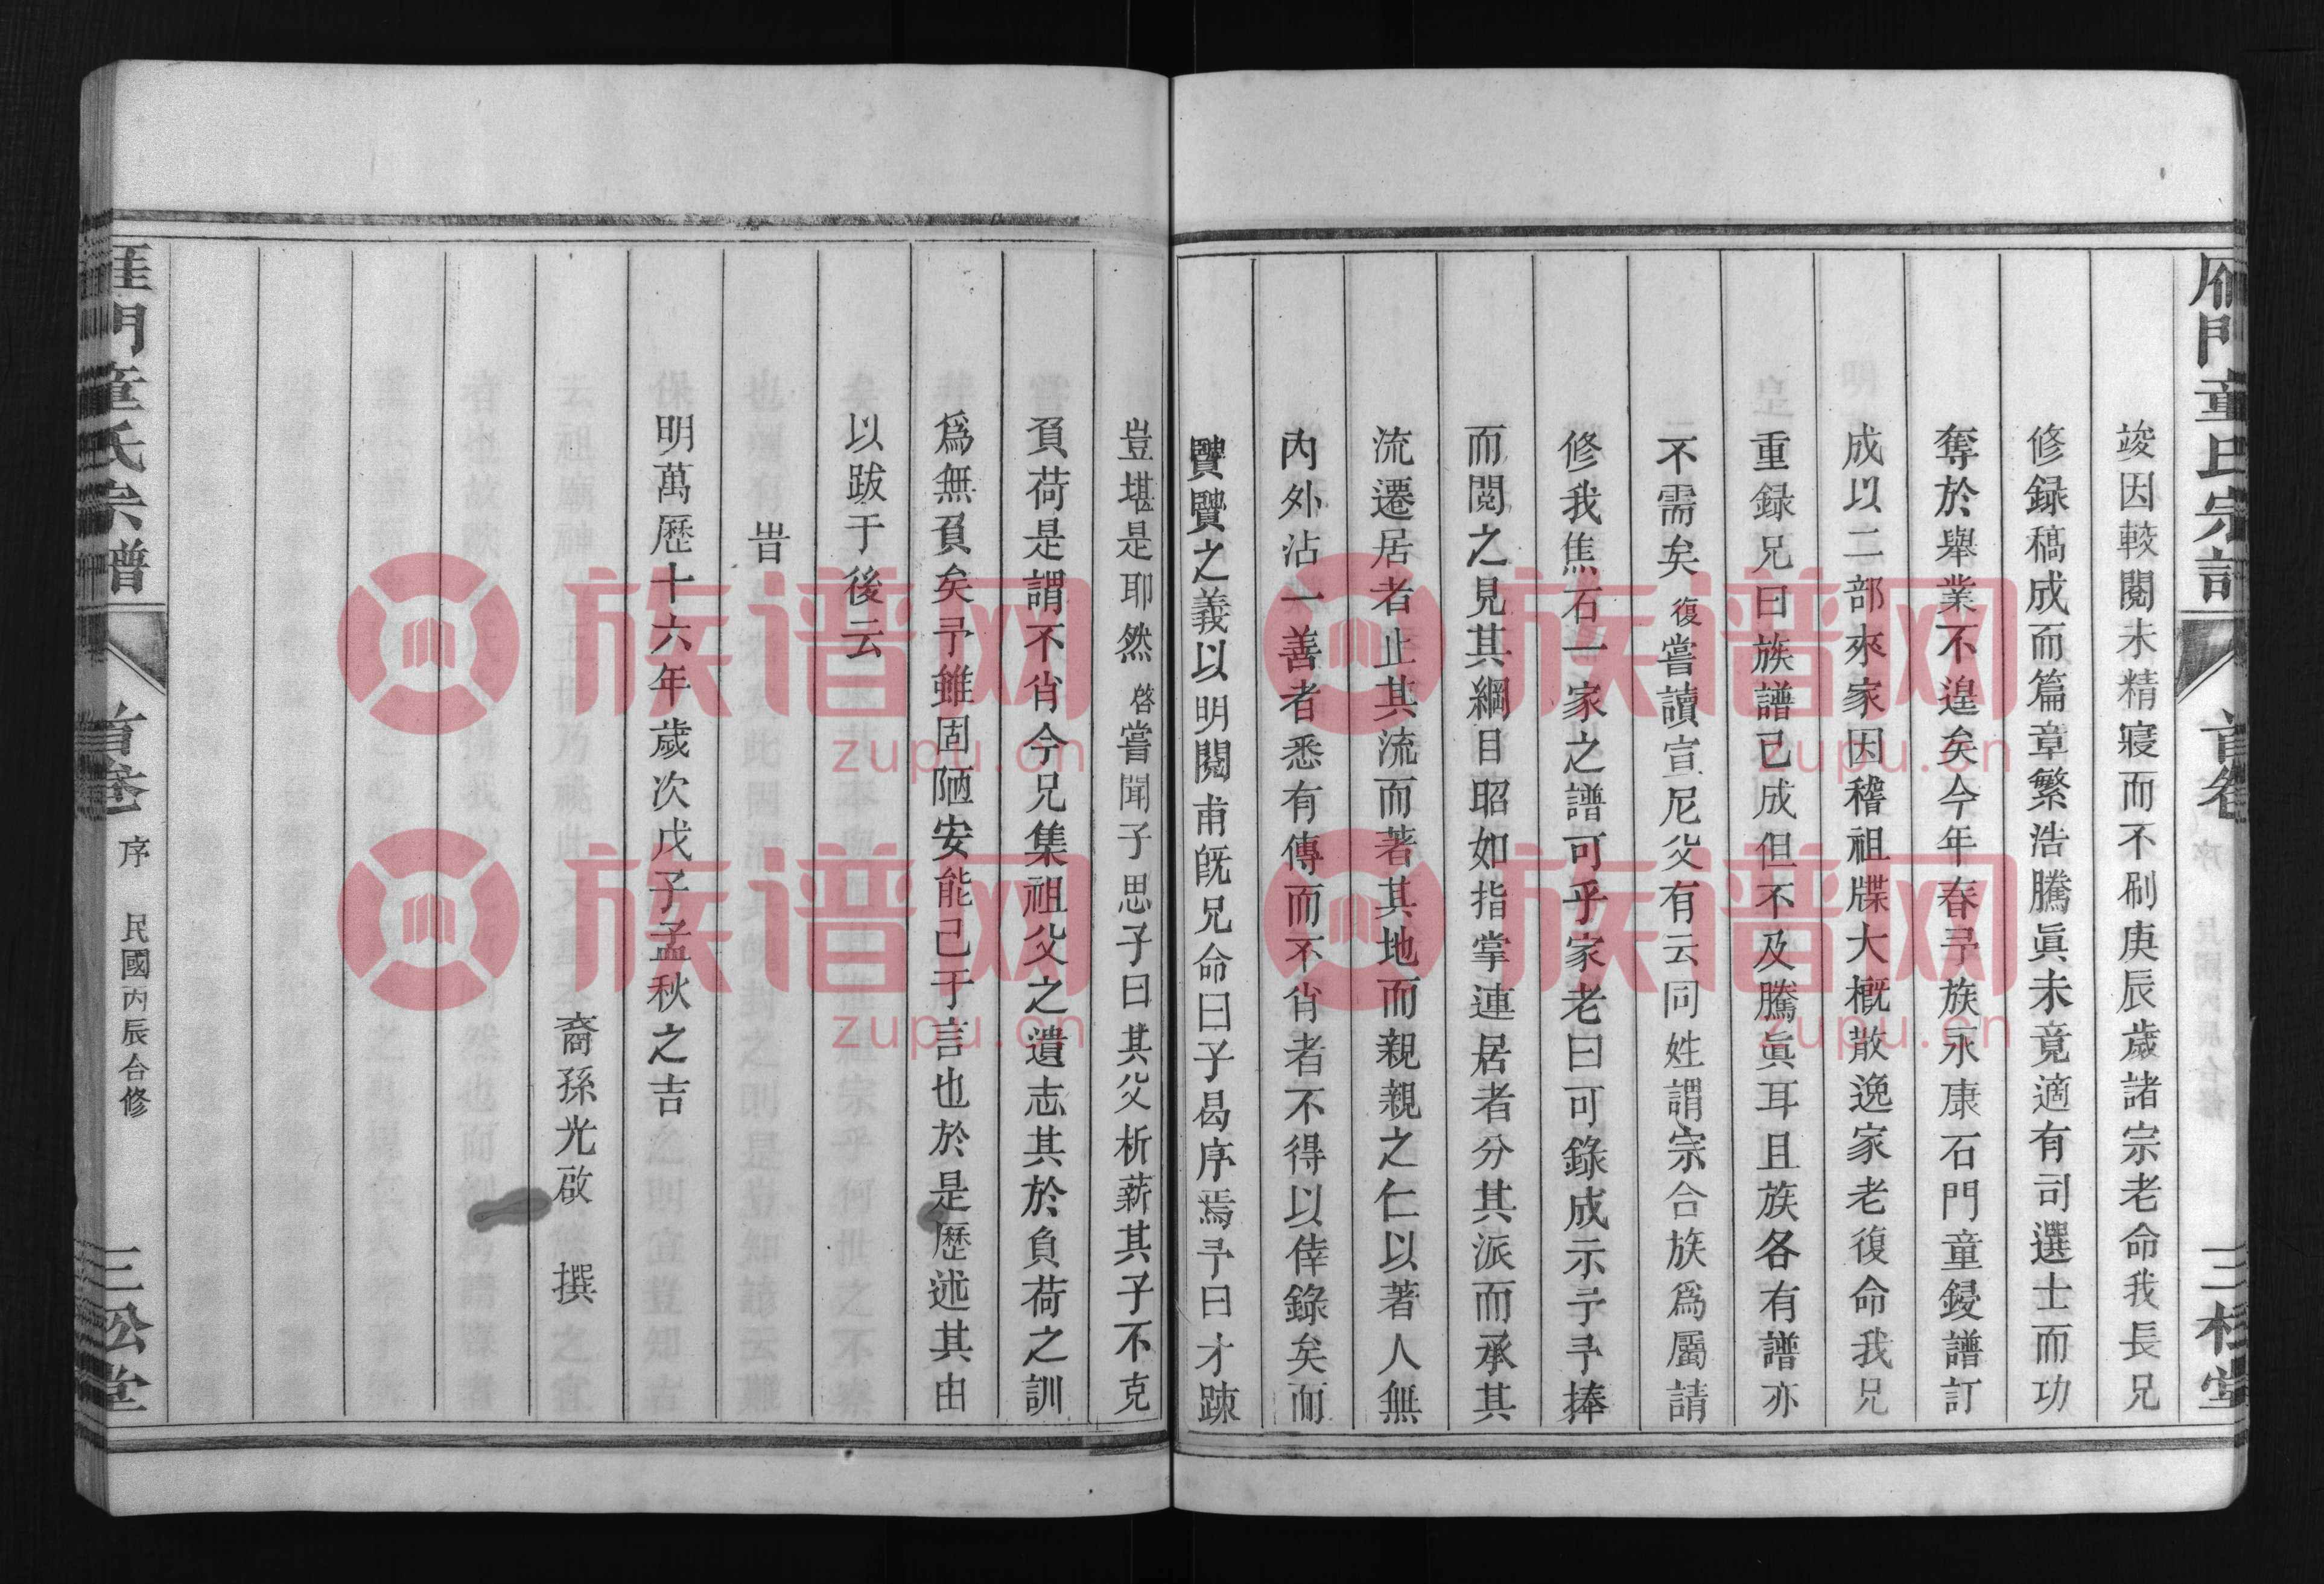 竣因較閱未精寢而不刷庚辰歲諸宗老命我長兄
修録稿成而篇章繁浩騰眞未竟適有司選士而功
奪於舉業不遑矣今年春予族永康石門童鋟譜訂
成以二部來家因稽祖牒大概散逸家老復命我兄
重録兄曰族譜已成但不及騰眞耳且族各有譜亦
不需矣復嘗讀宣尼父有云同姓謂宗合族爲屬請
修我焦石一家之譜可乎家老曰可錄成示予予捧
而閱之見其綱目昭如指掌連居者分其派而承其
流遷居者止其流而著其地而親親之仁以著人無
內外沾一善者悉有傳而不肖者不得以倖錄矣而
賢賢之義以明閱甫旣兄命曰子曷序焉予曰才踈
豈堪是耶然啓嘗聞子思子曰其父析薪其子不克
負荷是謂不肖今兄集祖父之遺志其於負荷之訓
爲無負矣予雖固陋安能已于言也於是歷述其由
以跋于後云
旹
明萬歷十六年歲次戊子孟秋之吉
裔孫光啟　撰
雁門童氏宗譜　首卷　序　民國丙辰合修　三松堂
族谱网
zupu.cn
族谱网
zupu.cn
族谱网
zupu.cn
族谱网
zupu.cn